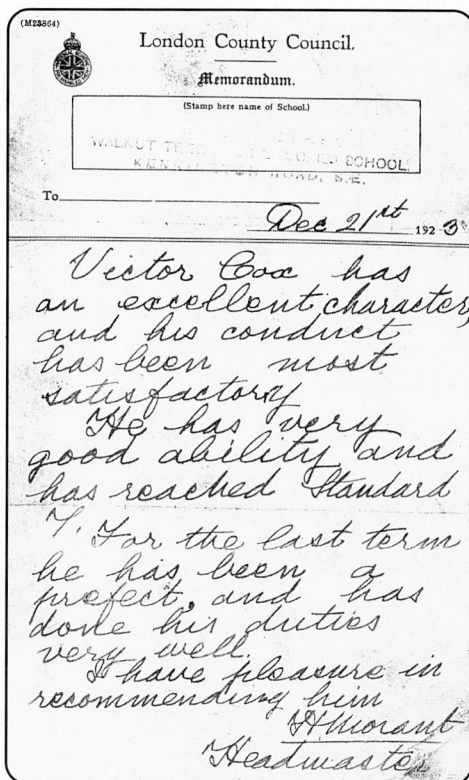 (M23864)
London County Council.
Memorandum.
(Stamp here name of School.)
WALNUT TREE SCHOOL
KENNINGTON ROAD, S.E.
To
Dec 21st 1923
Victor Cox has
an excellent character,
and his conduct
has been most
satisfactory
He has very
good ability and
has reached Standard
7. For the last term
he has been a
prefect, and has
done his duties
very well.
I have pleasure in
recommending him
H. Morant
Headmaster